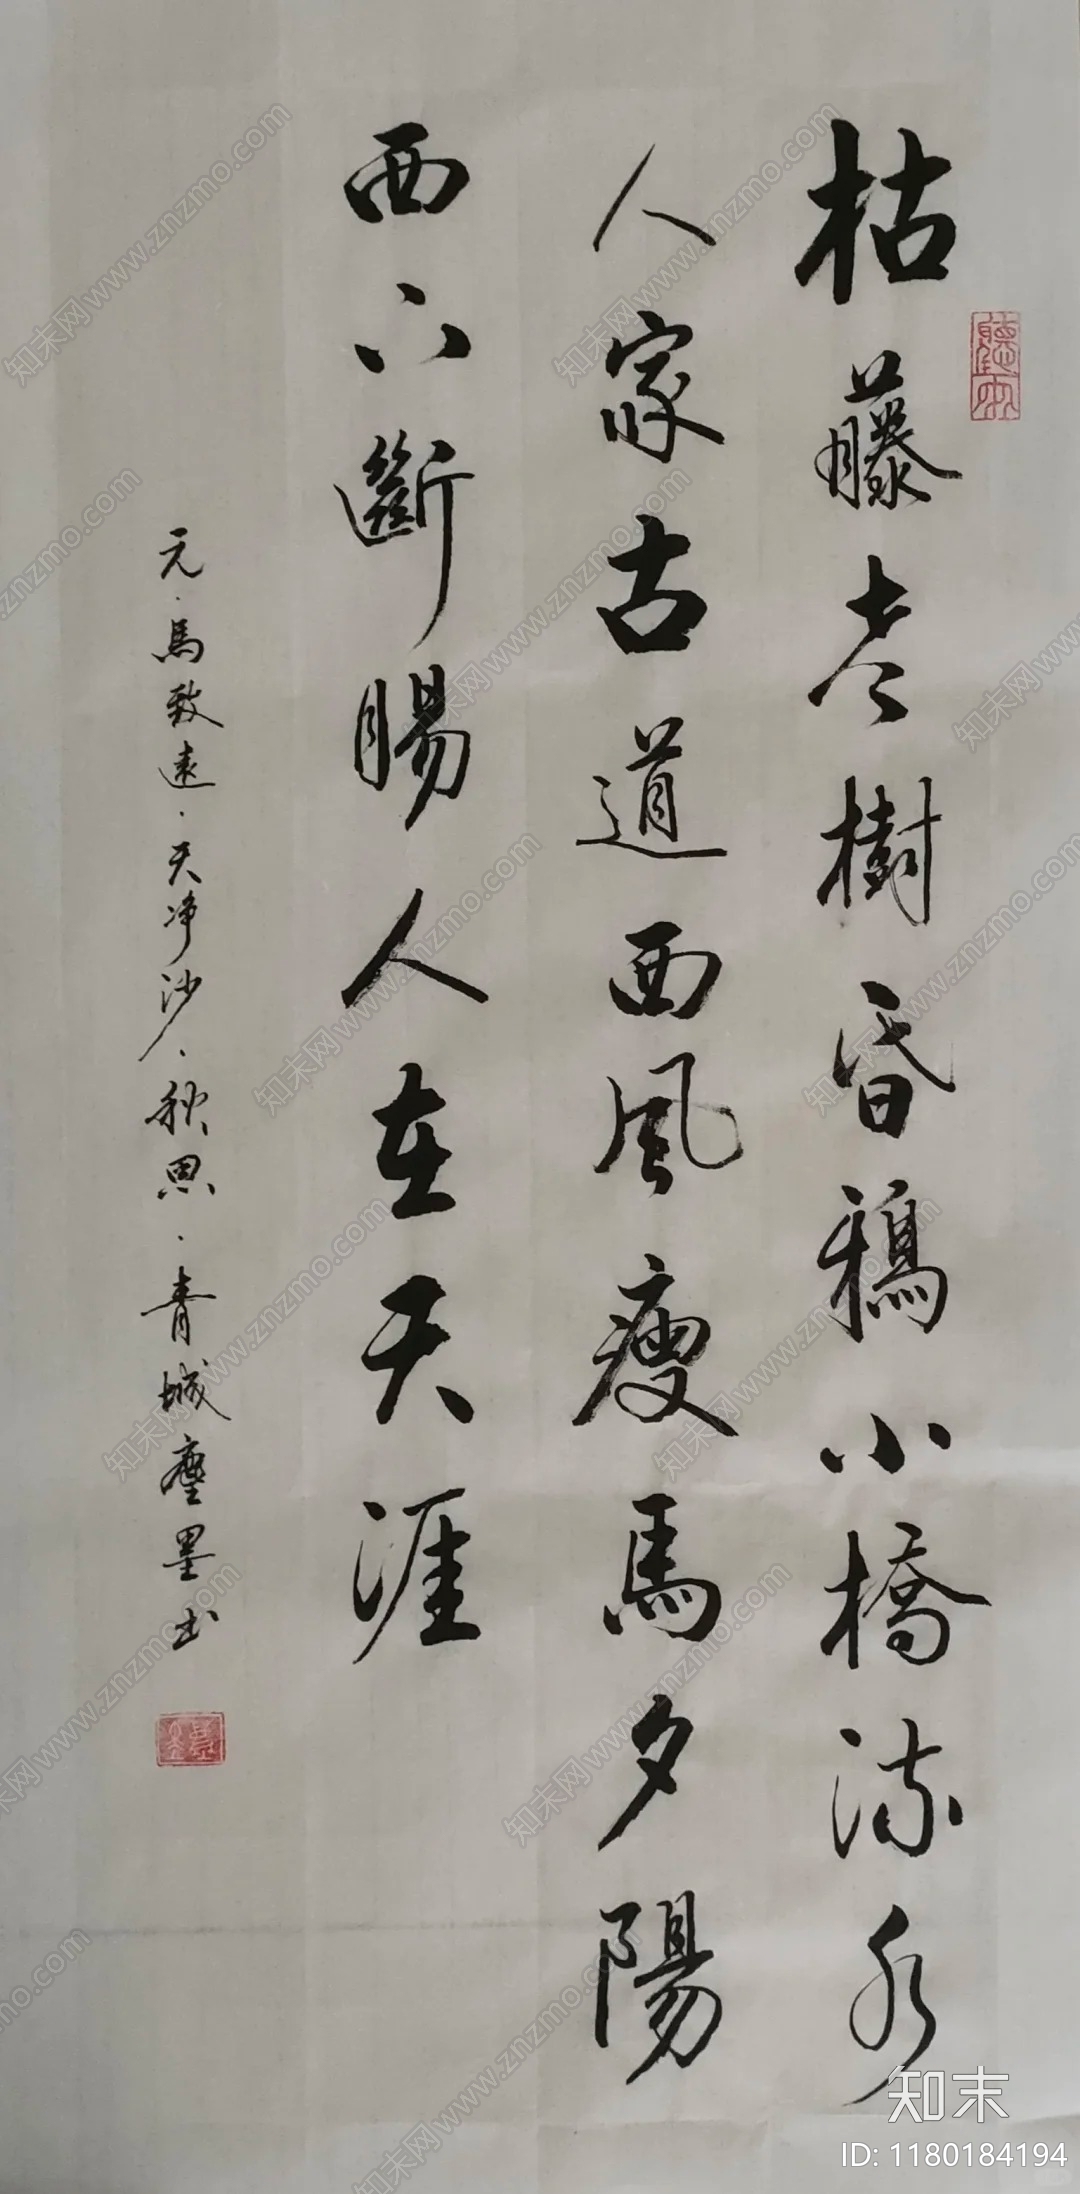 枯藤老樹昏鴉小橋流水
人家古道西風瘦馬夕陽
西下斷腸人在天涯
元·馬致遠·天净沙·秋思·青城塵墨书
聽雨
知末网www.znzmo.com
知末
ID: 1180184194